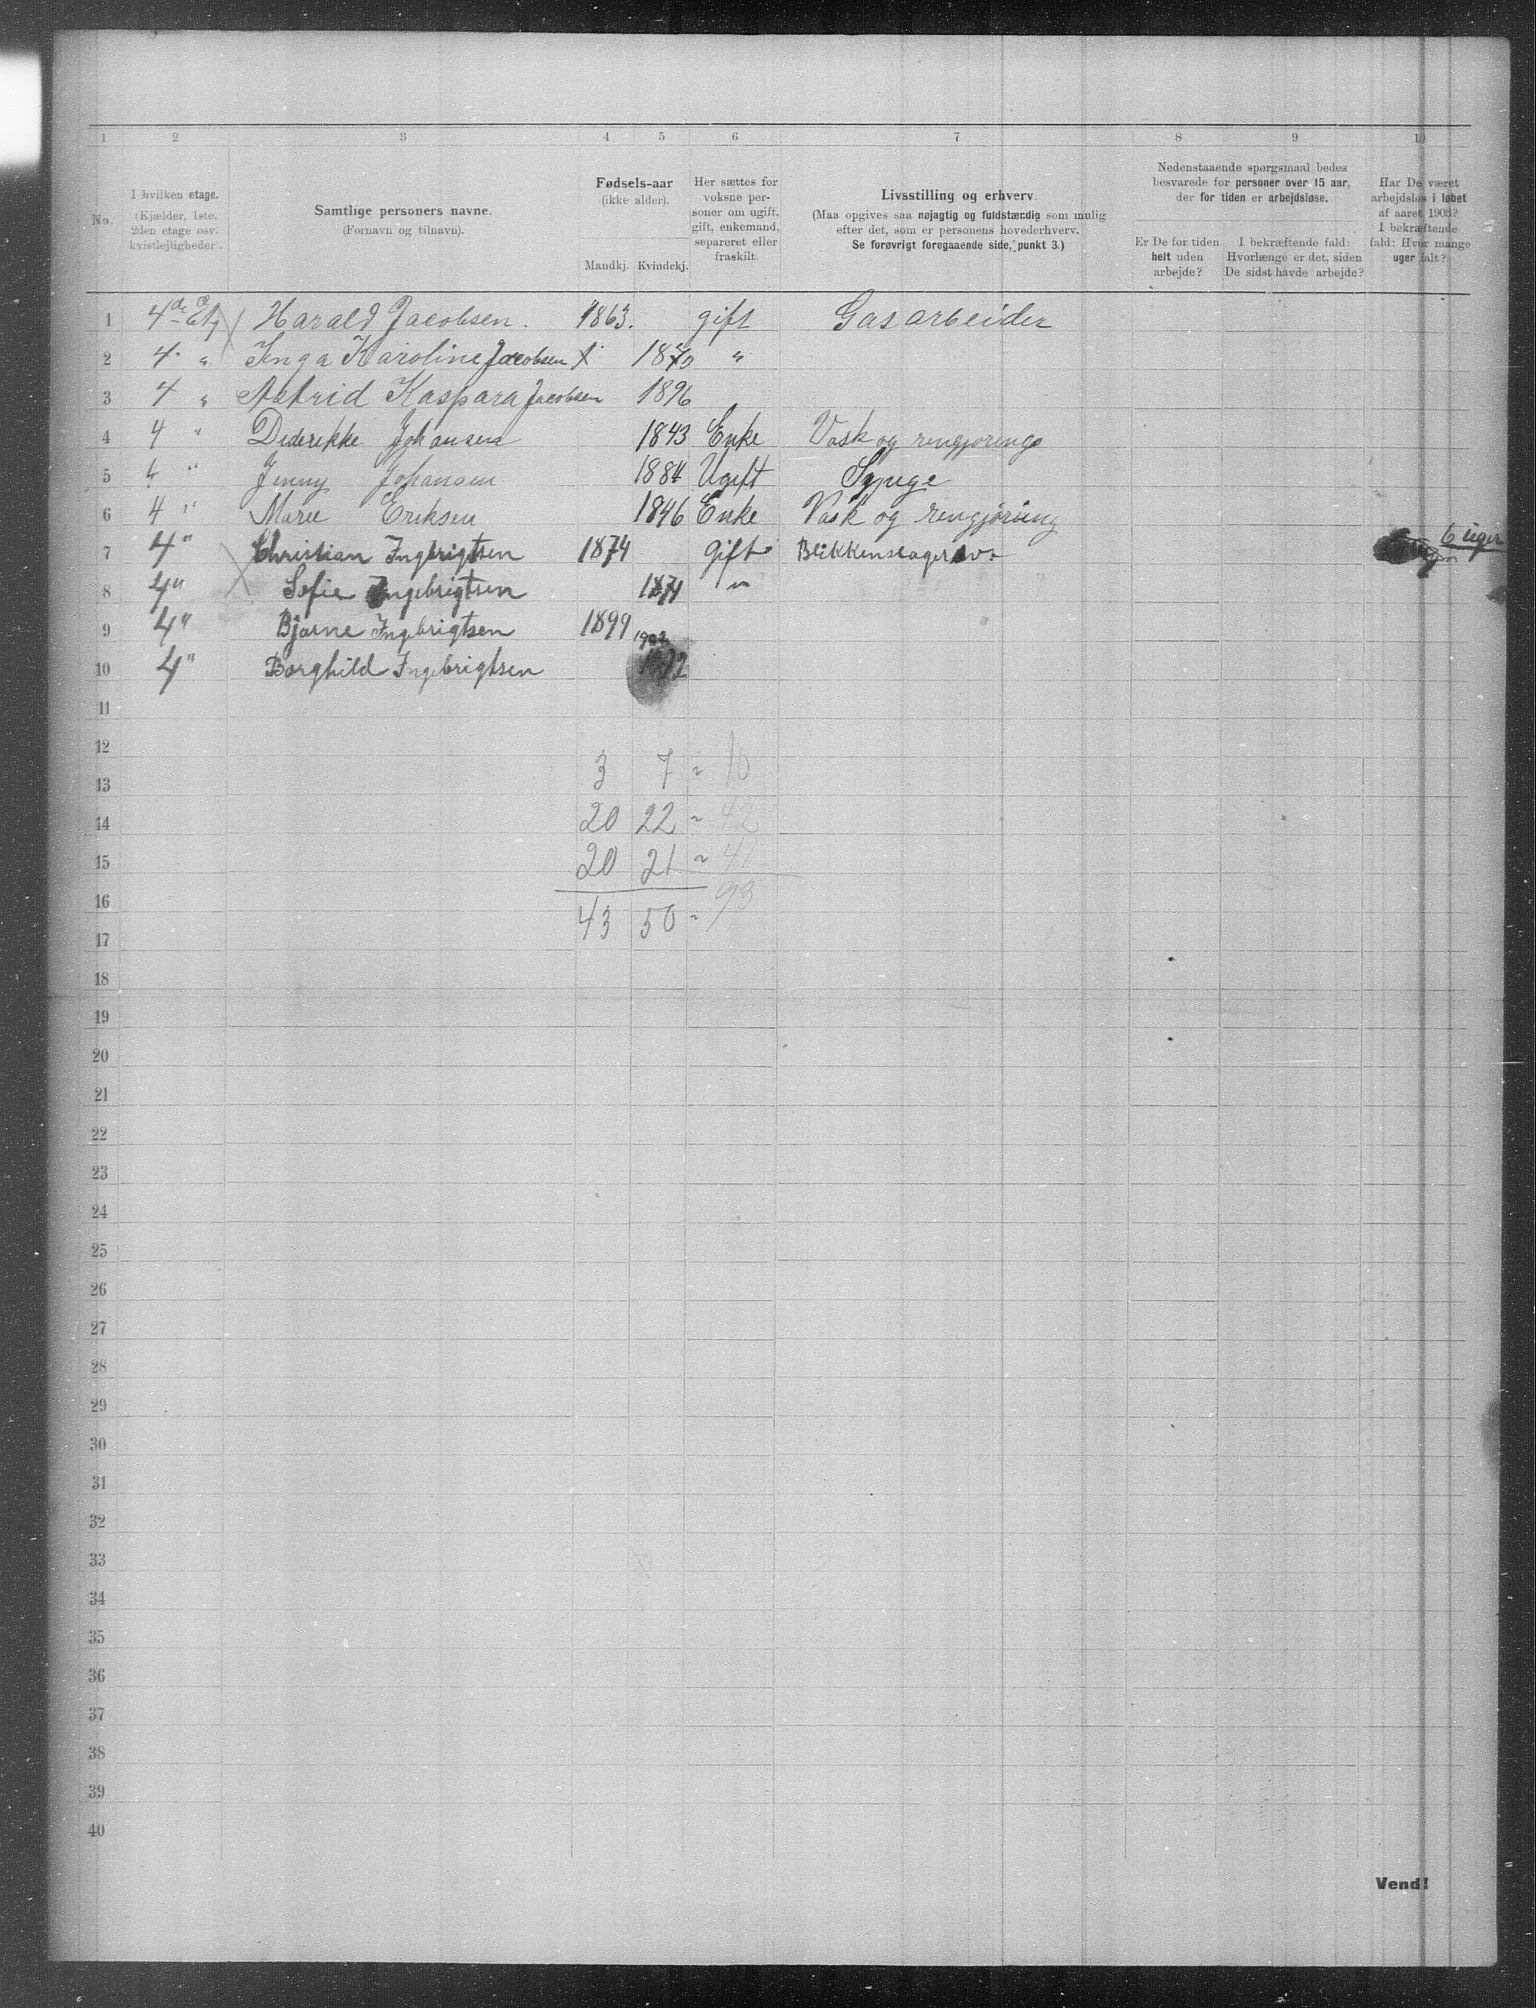 1 2 3 4 5 6 7 8 9 10
No.
I hvilken etage.
(Kjælder, 1ste.
2den etage osv.
kvistlejligheder.
Samtlige personers navne.
(Fornavn og tilnavn).
Fødsels-aar
(ikke alder).
Mandkj. Kvindekj.
Her sættes for
voksne per-
soner om ugift,
gift, enkemand,
separeret eller
fraskilt.
Livsstilling og erhverv.
(Maa opgives saa nøjagtig og fuldstændig som mulig
efter det, som er personens hovederhverv.
Se forøvrigt foregaaende side, punkt 3.)
Nedenstaaende spørgsmaal bedes
besvarede for personer over 15 aar,
der for tiden er arbejdsløse.
Er De for tiden
helt uden
arbejde?
I bekræftende fald:
Hvorlænge er det, siden
De sidst havde arbejde?
Har De været
arbejdsløs i løbet
af aaret 1903?
I bekræftende
fald: Hvor mange
uger ialt?
1 4de Etg Harald Jacobsen. 1863. gift Gasarbeider
2 4 " Inga Karoline Jacobsen 1870 "
3 4 " Astrid Kaspara Jacobsen 1896
4 4 " Diderikke Johansen 1843 Enke Vask og rengjøring
5 4 " Jenny Johansen 1884 Ugift Sypige
6 4 " Marie Eriksen 1846 Enke Vask og rengjøring
7 4 " Christian Ingbrigtsen 1874 Gift Blikkenslagersv. 6 uger
8 4 " Sofie Ingebrigtsen 1871 "
9 4 " Bjarne Ingebrigtsen 1899
10 4 " Borghild Ingebrigtsen 1902
11
12
13 3 7 ~ 10
14 20 22 ~ 42
15 20 21 ~ 41
16
17 43 50 ~ 93
18
19
20
21
22
23
24
25
26
27
28
29
30
31
32
33
34
35
36
37
38
39
40
Vend!